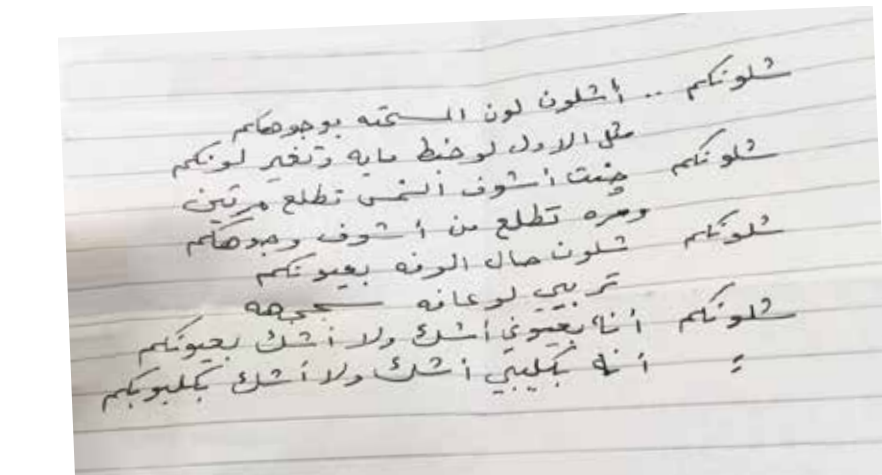 شلونكم .. أشلون لون الـ ـحنه بوجوهكم
مثل الاول لو خبط مايه وتغير لونكم
شلونكم چنت أشوف الشمس تطلع مرتين
ومره تطلع من أشوف وجوهكم
شلونكم شلون حال الوفه بعيونكم
تربي لو عافه
شلونكم أنا بعيوني أشك ولا أشك بعيونكم
= أنه بگليبي أشك ولا أشك بگلوبكم